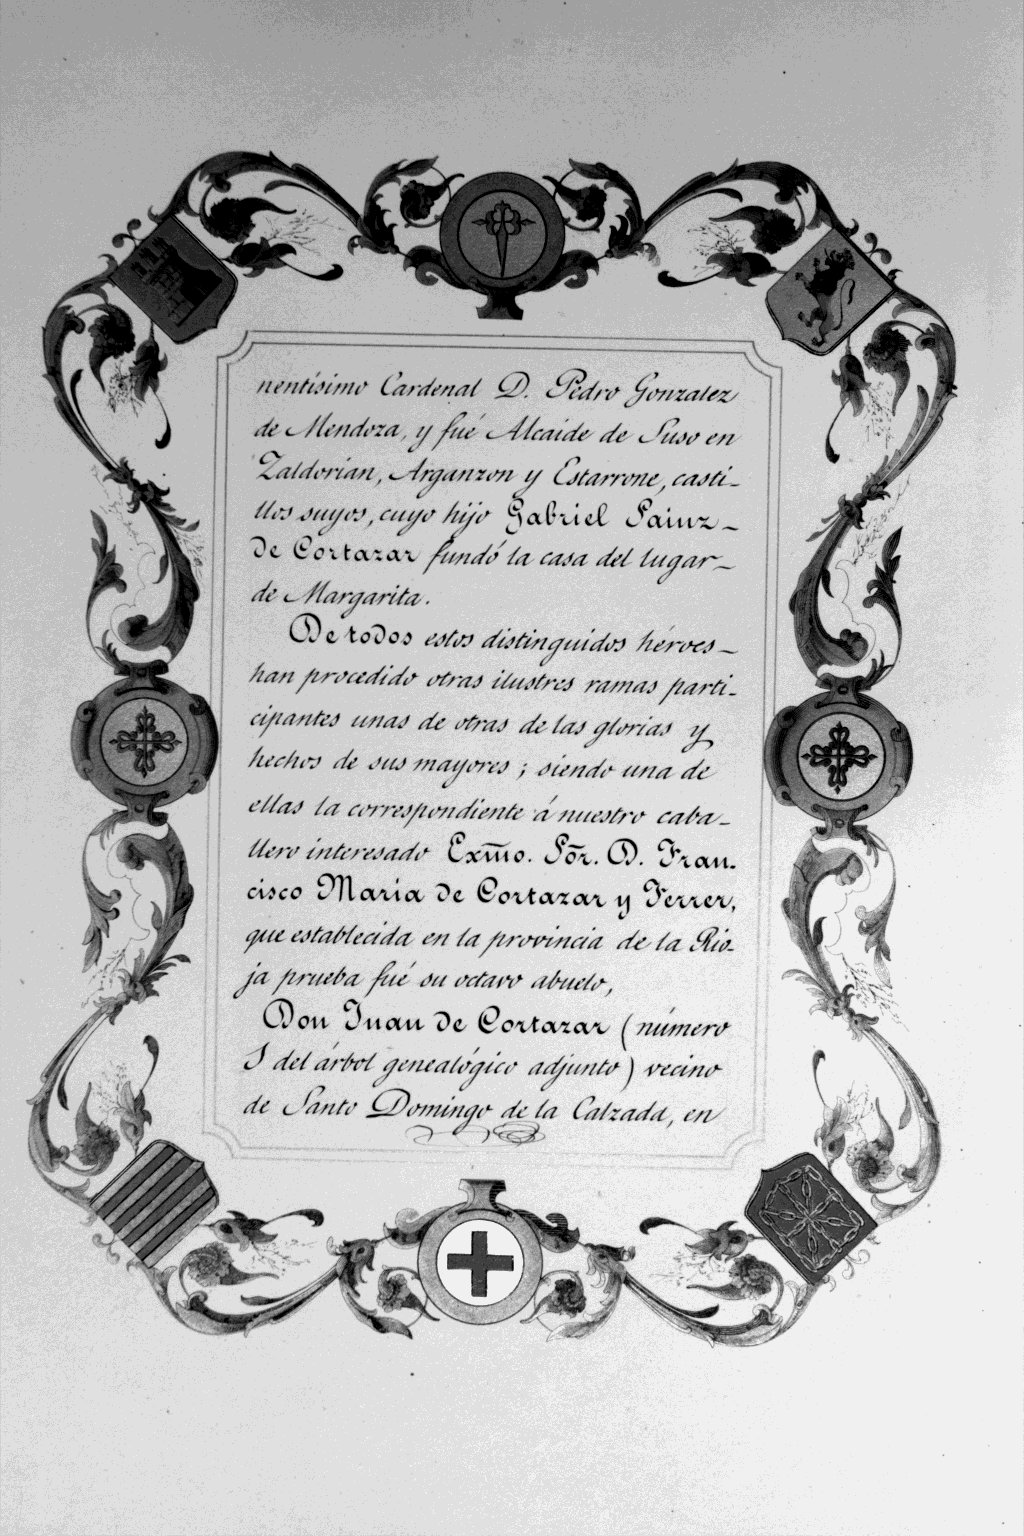 nentísimo Cardenal D. Pedro Gonzalez
de Mendoza, y fué Alcaide de Suso en
Zaldorian, Arganzon y Estarrone, casti-
llos suyos, cuyo hijo Gabriel Sainz-
de Cortazar fundó la casa del lugar-
de Margarita.
De todos estos distinguidos héroes-
han procedido otras ilustres ramas parti-
cipantes unas de otras de las glorias y
hechos de sus mayores; siendo una de
ellas la correspondiente á nuestro caba-
llero interesado Exm̃o. Sõr. D. Fran-
cisco Maria de Cortazar y Ferrer,
que establecida en la provincia de la Rio-
ja prueba fué su octavo abuelo,
Don Juan de Cortazar (número
1 del árbol genealógico adjunto) vecino
de Santo Domingo de la Calzada, en